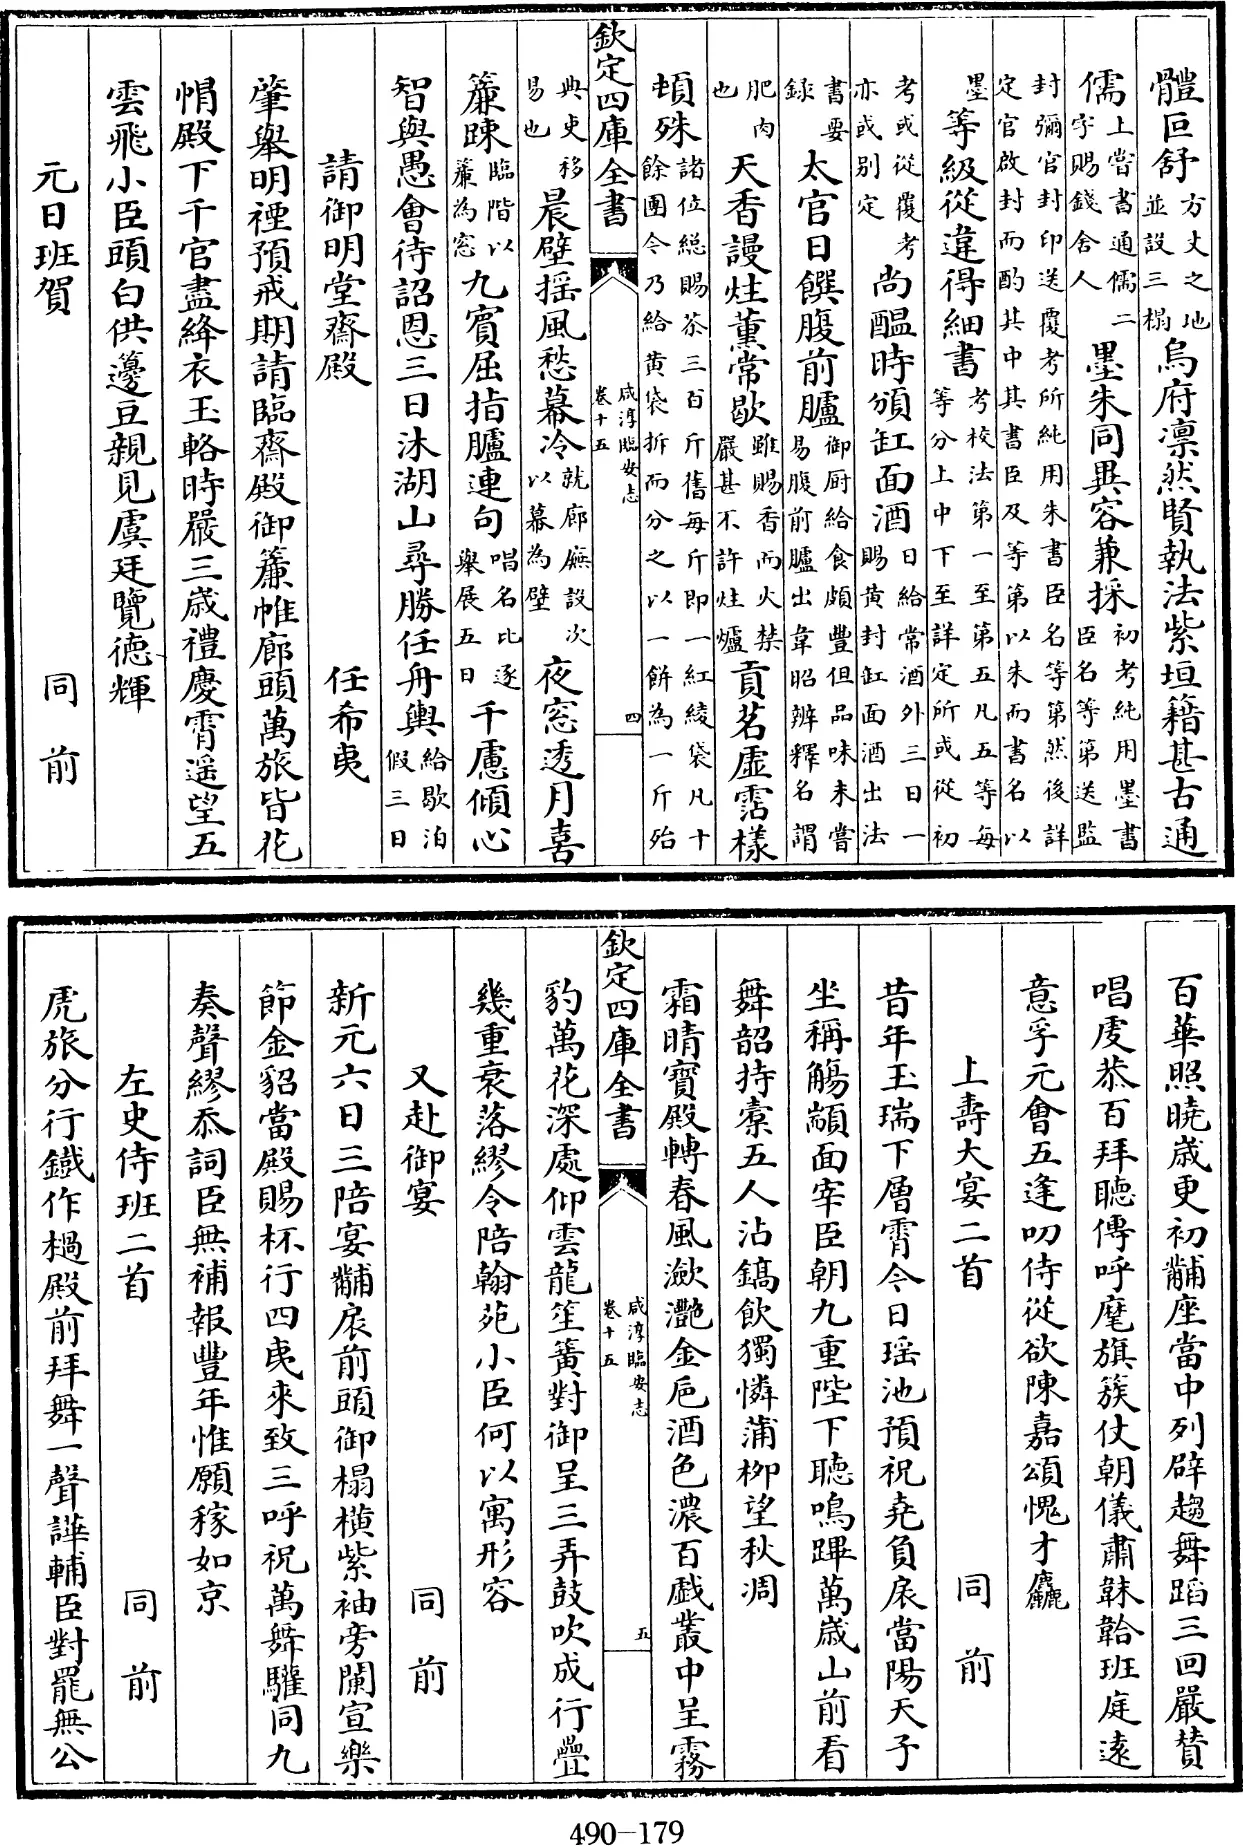 體叵舒方丈之地並設三榻烏府凛然賢執法紫垣籍甚古通
儒上嘗書通儒二字賜錢舍人墨朱同異容兼採初考純用墨書臣名等第送監
封彌官封印送覆考所純用朱書臣名等第然後詳定官啟封而酌其中其書臣及等第以朱而書名以
墨等級從違得細書考校法第一至第五凡五等每等分上中下至詳定所或從初
考或從覆考亦或别定尚醖時頒缸面酒日給常酒外三日一賜黄封缸面酒出法
書要録太官日饌腹前臚御厨給食頗豐但品味未嘗易腹前臚出韋昭辨釋名謂
肥肉也天香謾炷薰常歇雖賜香而火禁嚴甚不許炷爐貢茗虛霑樣
頓殊諸位緫賜茶三百斤舊每斤即一紅綾袋凡十餘團令乃給黄袋折而分之以一餅為一斤殆
欽定四庫全書
咸淳臨安志
卷十五
四
典吏移易也晨壁揺風愁幕冷就廊廡設次以幕為壁夜窓透月喜
簾踈臨階以簾為窓九賓屈指臚連句唱名比逐舉展五日千慮傾心
智與愚會待詔恩三日沐湖山尋勝任舟輿給歇泊假三日
請御明堂齋殿 任希夷
肇舉明禋預戒期請臨齋殿御簾帷廊頭萬旅皆花
帽殿下千官盡絳衣玉輅時嚴三歳禮慶霄遥望五
雲飛小臣頭白供籩豆親見虞廷覽德輝
元日班賀 同前
百華照曉歳更初黼座當中列辟趨舞蹈三回嚴賛
唱虔恭百拜聽傳呼麾旗簇仗朝儀肅韎韐班庭逺
意孚元會五逢叨侍從欲陳嘉頌愧才麤
上壽大宴二首 同前
昔年玉瑞下層霄今日瑶池預祝堯負扆當陽天子
坐稱觴顒面宰臣朝九重陛下聽鳴蹕萬歳山前看
舞韶持橐五人沾鎬飲獨憐蒲柳望秋凋
霜晴寳殿轉春風瀲灔金巵酒色濃百戲叢中呈霧
欽定四庫全書
咸淳臨安志
卷十五
五
豹萬花深處仰雲龍笙簧對御呈三弄鼓吹成行疊
幾重衰落繆令陪翰苑小臣何以寓形容
又赴御宴 同前
新元六日三陪宴黼扆前頭御榻横紫袖旁闌宣樂
節金貂當殿賜杯行四夷來致三呼祝萬舞驩同九
奏聲繆忝詞臣無補報豐年惟願稼如京
左史侍班二首 同前
虎旅分行鐵作檛殿前拜舞一聲譁輔臣對罷無公
490-179